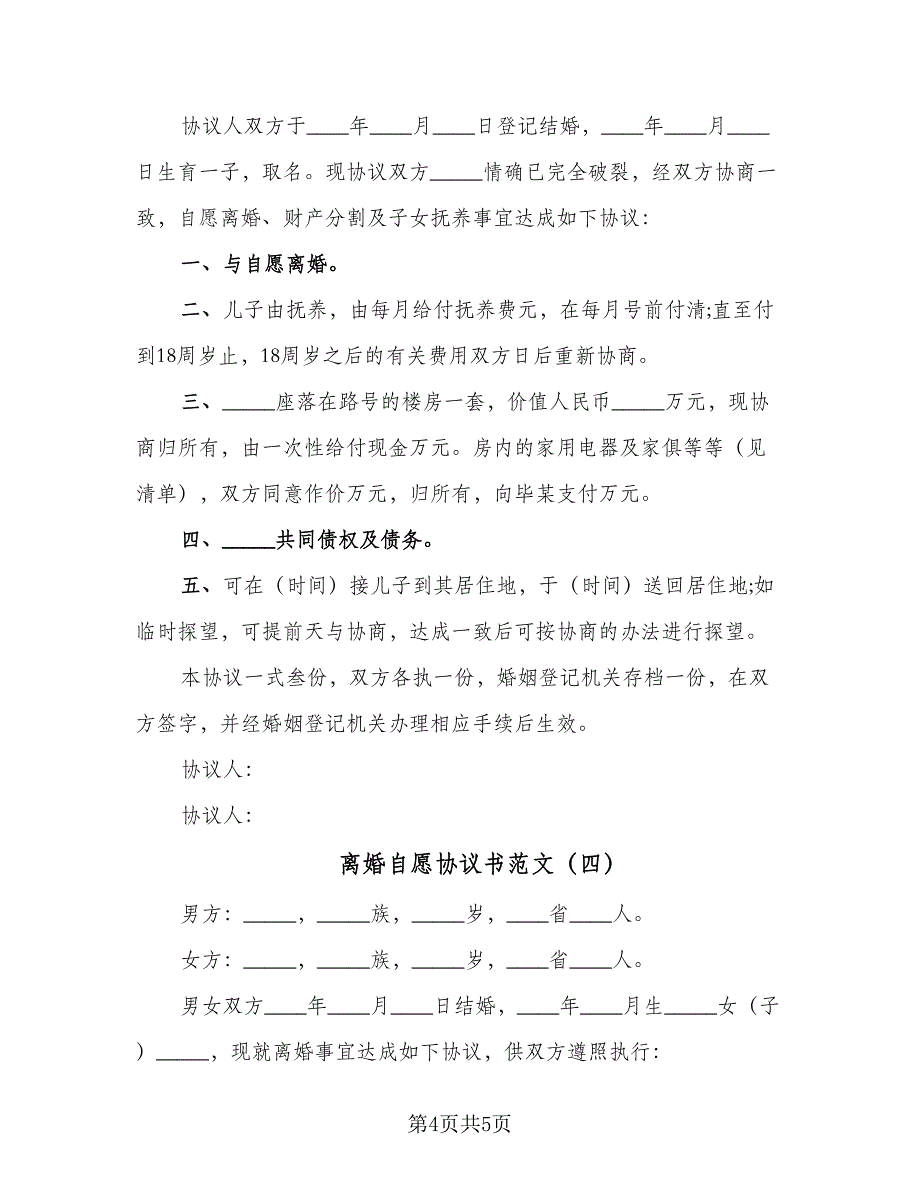 协议人双方于____年____月____日登记结婚，____年____月____
日生育一子，取名。现协议双方_____情确已完全破裂，经双方协商一
致，自愿离婚、财产分割及子女抚养事宜达成如下协议：
一、与自愿离婚。
二、儿子由抚养，由每月给付抚养费元，在每月号前付清;直至付
到18周岁止，18周岁之后的有关费用双方日后重新协商。
三、_____座落在路号的楼房一套，价值人民币_____万元，现协
商归所有，由一次性给付现金万元。房内的家用电器及家俱等等（见
清单），双方同意作价万元，归所有，向毕某支付万元。
四、_____共同债权及债务。
五、可在（时间）接儿子到其居住地，于（时间）送回居住地;如
临时探望，可提前天与协商，达成一致后可按协商的办法进行探望。
本协议一式叁份，双方各执一份，婚姻登记机关存档一份，在双
方签字，并经婚姻登记机关办理相应手续后生效。
协议人：
协议人：
离婚自愿协议书范文（四）
男方：_____，_____族，_____岁，____省____人。
女方：_____，_____族，_____岁，____省____人。
男女双方____年____月____日结婚，____年____月生_____女（子
）_____，现就离婚事宜达成如下协议，供双方遵照执行：
第4页共5页